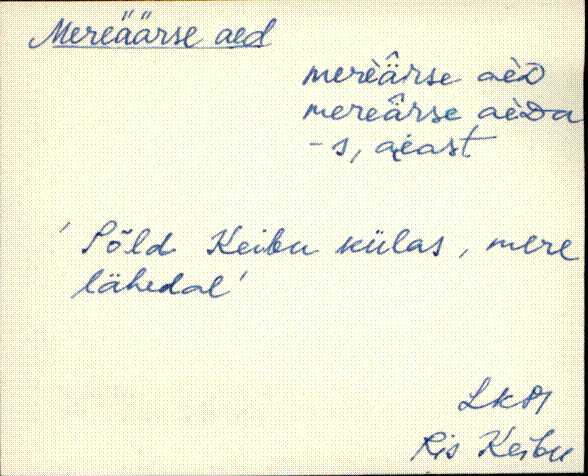 Mereäärse aed
merèä̂rse aèD
mereä̂rse aèDa
-s, aéast
' Põld Keibu külas, mere
lähedal '
LkM
Ris Keibu